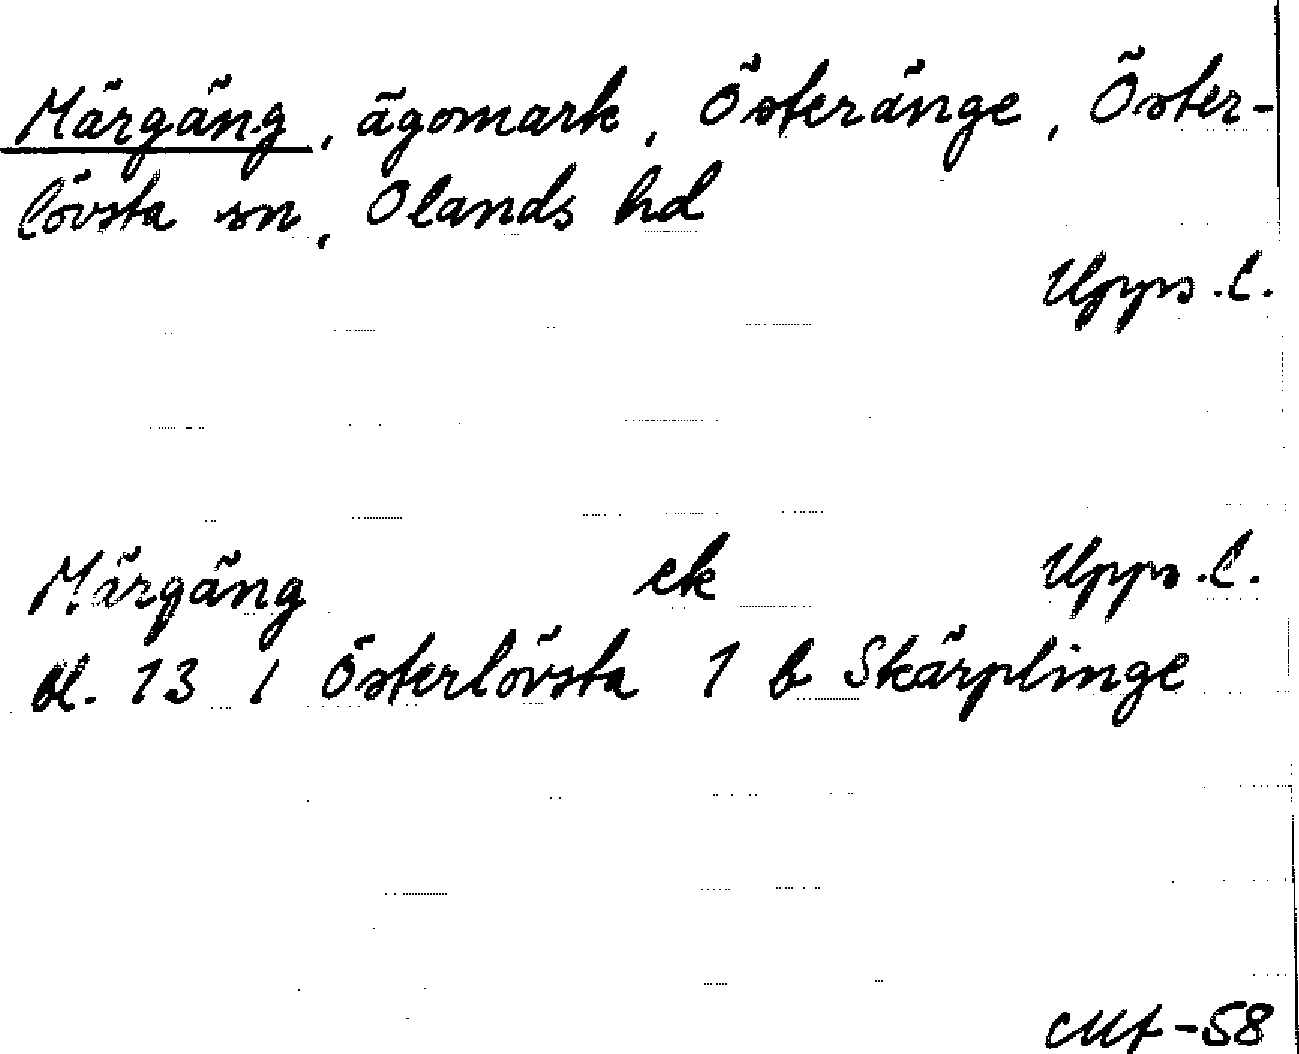 Märgäng, ägomark, Österänge, Öster-
lövsta sn, Olands hd
Upps. l.
Märgäng ek Upps. l.
bl. 13 1 Österlövsta 1 b Skärplinge
-58